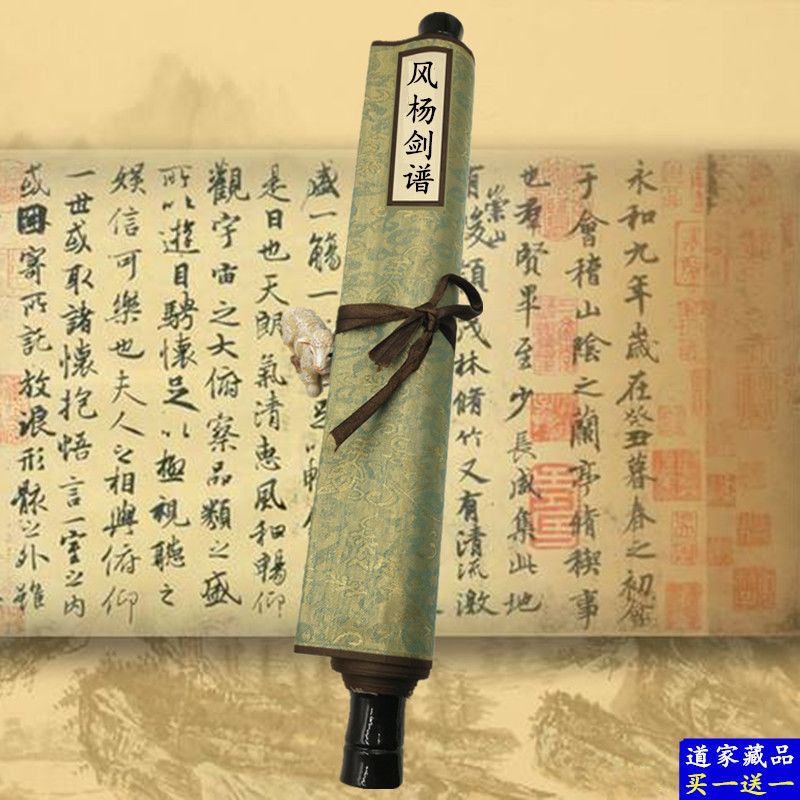 风杨剑谱
永和九年歲在癸丑暮春之初會
于會稽山陰之蘭亭脩稧事
也群賢畢至少長咸集此地
有崇山峻領茂林脩竹又有清流激
盛一觴一
是日也天朗氣清惠風和暢仰
觀宇宙之大俯察品類之盛
所以遊目騁懷足以極視聽之
娛信可樂也夫人之相與俯仰
一世或取諸懷抱悟言一室之內
或因寄所託放浪形骸之外雖
道家藏品
买一送一